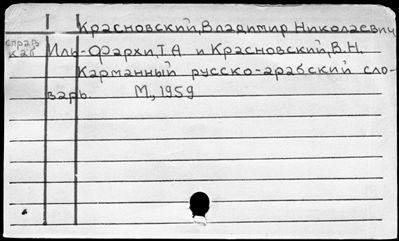 Красновский, Владимир Николаевич
справ Иль-Фархи, Т А и Красновский, В.Н.
каб Карманный русско-арабский сло-
варь. М, 1959